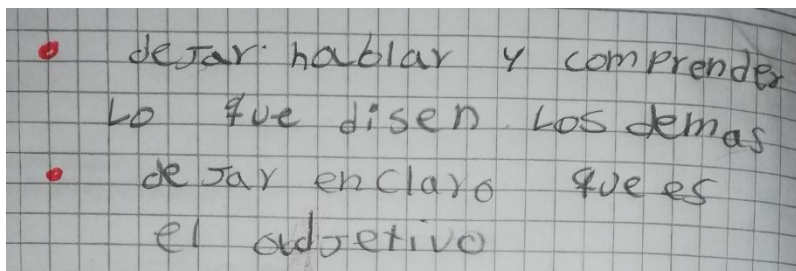 • dejar hablar y comprender
Lo que disen Los demas
• dejar enclaro que es
el adjetivo